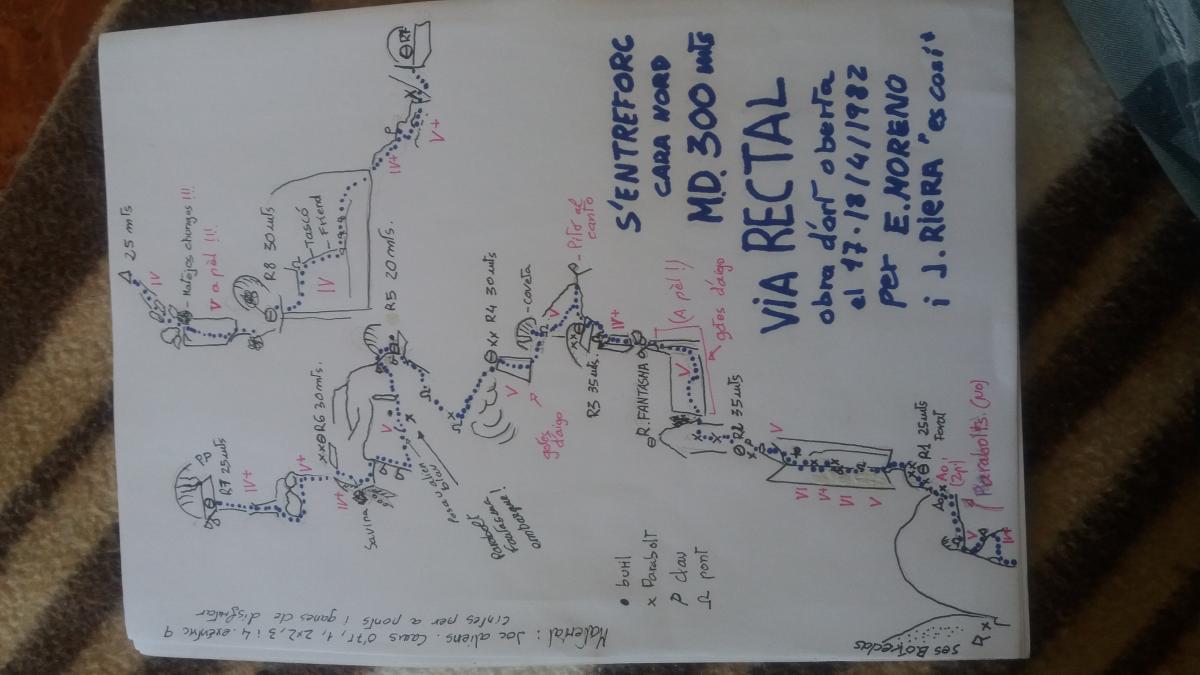 S'ENTREFORC
CARA NORD
M.D. 300 mts
VIA RECTAL
obra d'art oberta
el 17·18/4/1982
per E. MORENO
i J. RIERA "es coxi"
25 mts
IV
- Matojos chungos!!!
V a pèl!!!
R8 30 mts
- Tascó
- Friend
IV
IV+
V+
R7
R5 20 mts.
R7 25 mts
IV+
V+
xx R6 30 mts.
IV+
Savina
V
posa alien
Parabolt
xx R4 30 mts
V
- Coveta
gotes
d'aigo
V
- Pitó al
canto
xx
R3 35 mts.
IV+
R. FANTASMA
V
(A pèl!!)
gotes d'aigo
R2 35 mts
V
VI
V+
VI
V
R1 25 mts
Ao
Ao
V
Parabolts. (NO)
IV+
• buril
x Parabolt
clau
Ω pont
ses Boredes
Material: Joc aliens. Cams
2x2, 3 i 4. excèntric 9
cintes per a ponts i ganes de disfrutar